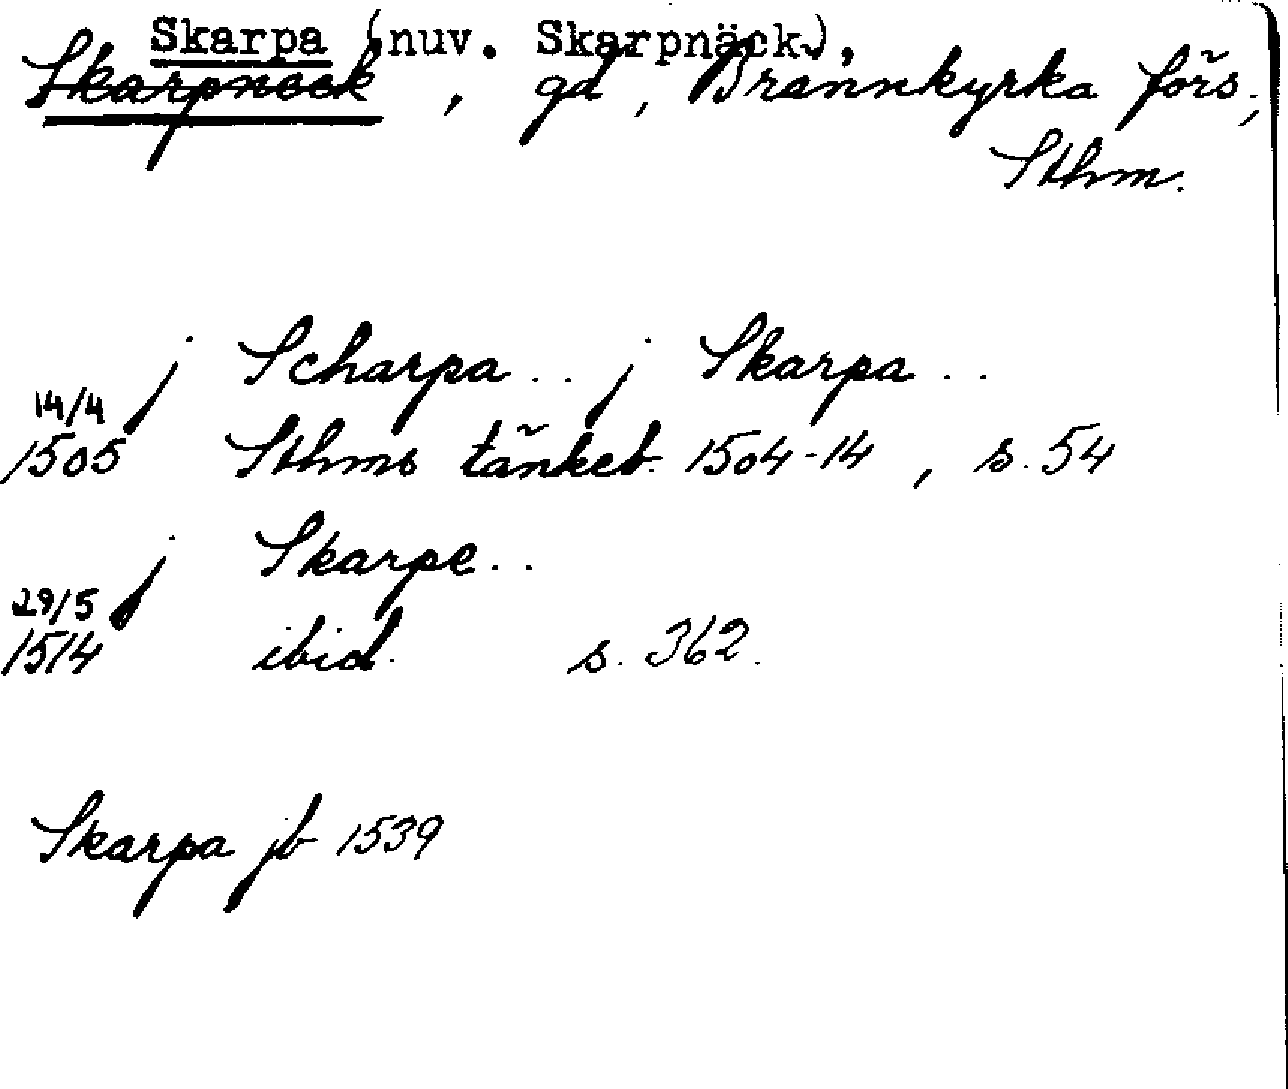 Skarpa (nuv. Skarpnäck),
Skarpnäck, gd, Brännkyrka förs.,
Sthm.
j Scharpa .. j Skarpa ..
14/4
1505 Sthms tänkeb. 1504-14, s. 54
j Skarpe ..
29/5
1514 ibid. s. 362.
Skarpa jb 1539